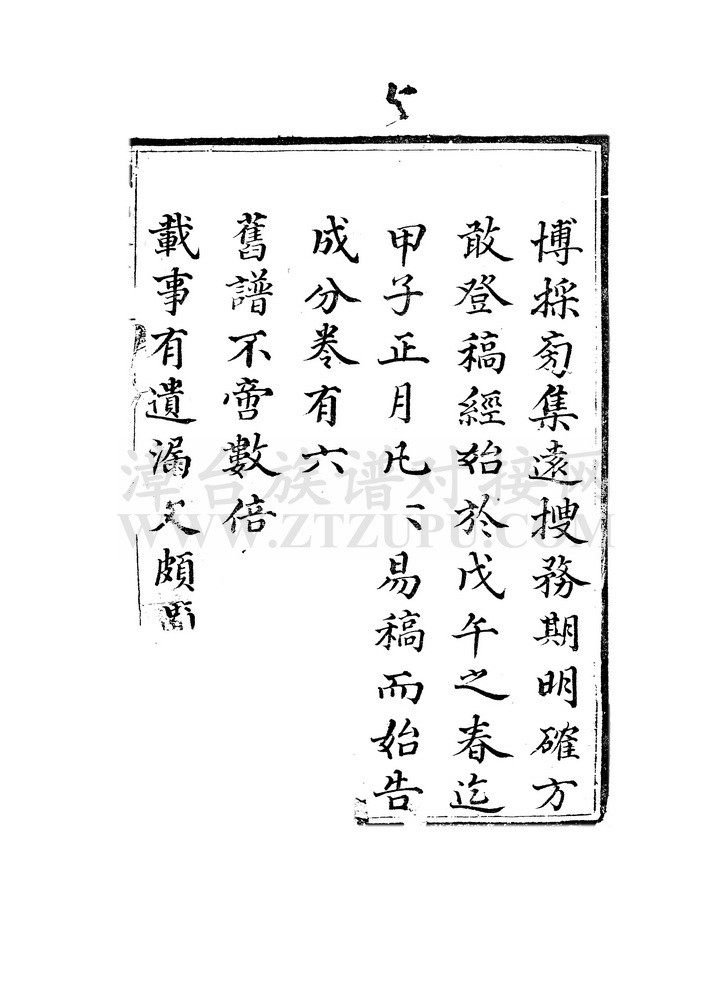 博採旁集遠搜務期明確方
敢登稿經始於戊午之春迄
甲子正月凡易稿而始告
成分卷有六
舊譜不啻數倍
載事有遺漏頗
漳台族谱对接网
WWW.ZTZUPU.COM